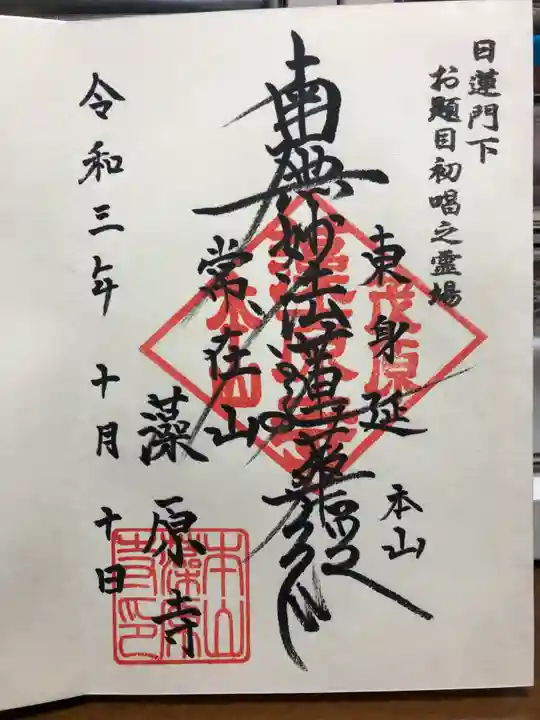 日蓮門下
お題目初唱之霊場
東身延
本山
南無妙法蓮華経
常在山
藻原寺
令和三年 十月 十日
茂原
本山
藻原
寺印